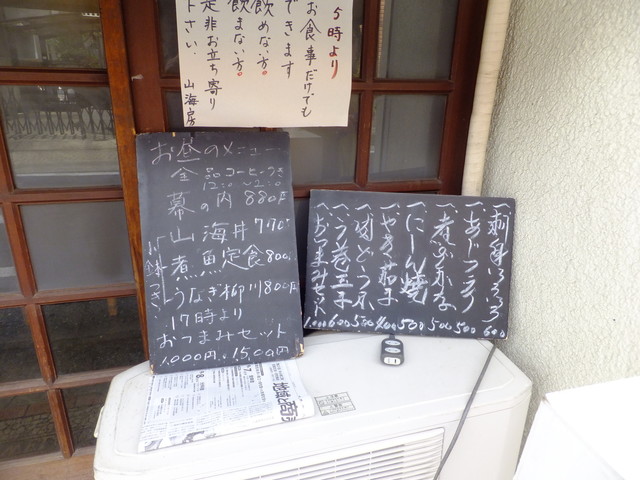 5時より
お食事だけでも
できます
飲めない方。
飲まない方。
是非お立ち寄り
下さい。
山海房
お昼のメニュー
全品コーヒーつき
12:0〜2:0
幕の内 880円
山海丼 770円
煮魚定食 800円
うなぎ柳川 800円
小鉢つき
17時より
おつまみセット
1,000円 1,500円
一、刺身いろいろ 600
一、あじフライ 500
一、煮
一、にしん焼 500
一、やき茄子 400
一、
一、う巻玉子 600
一、おつまみセット 1,000